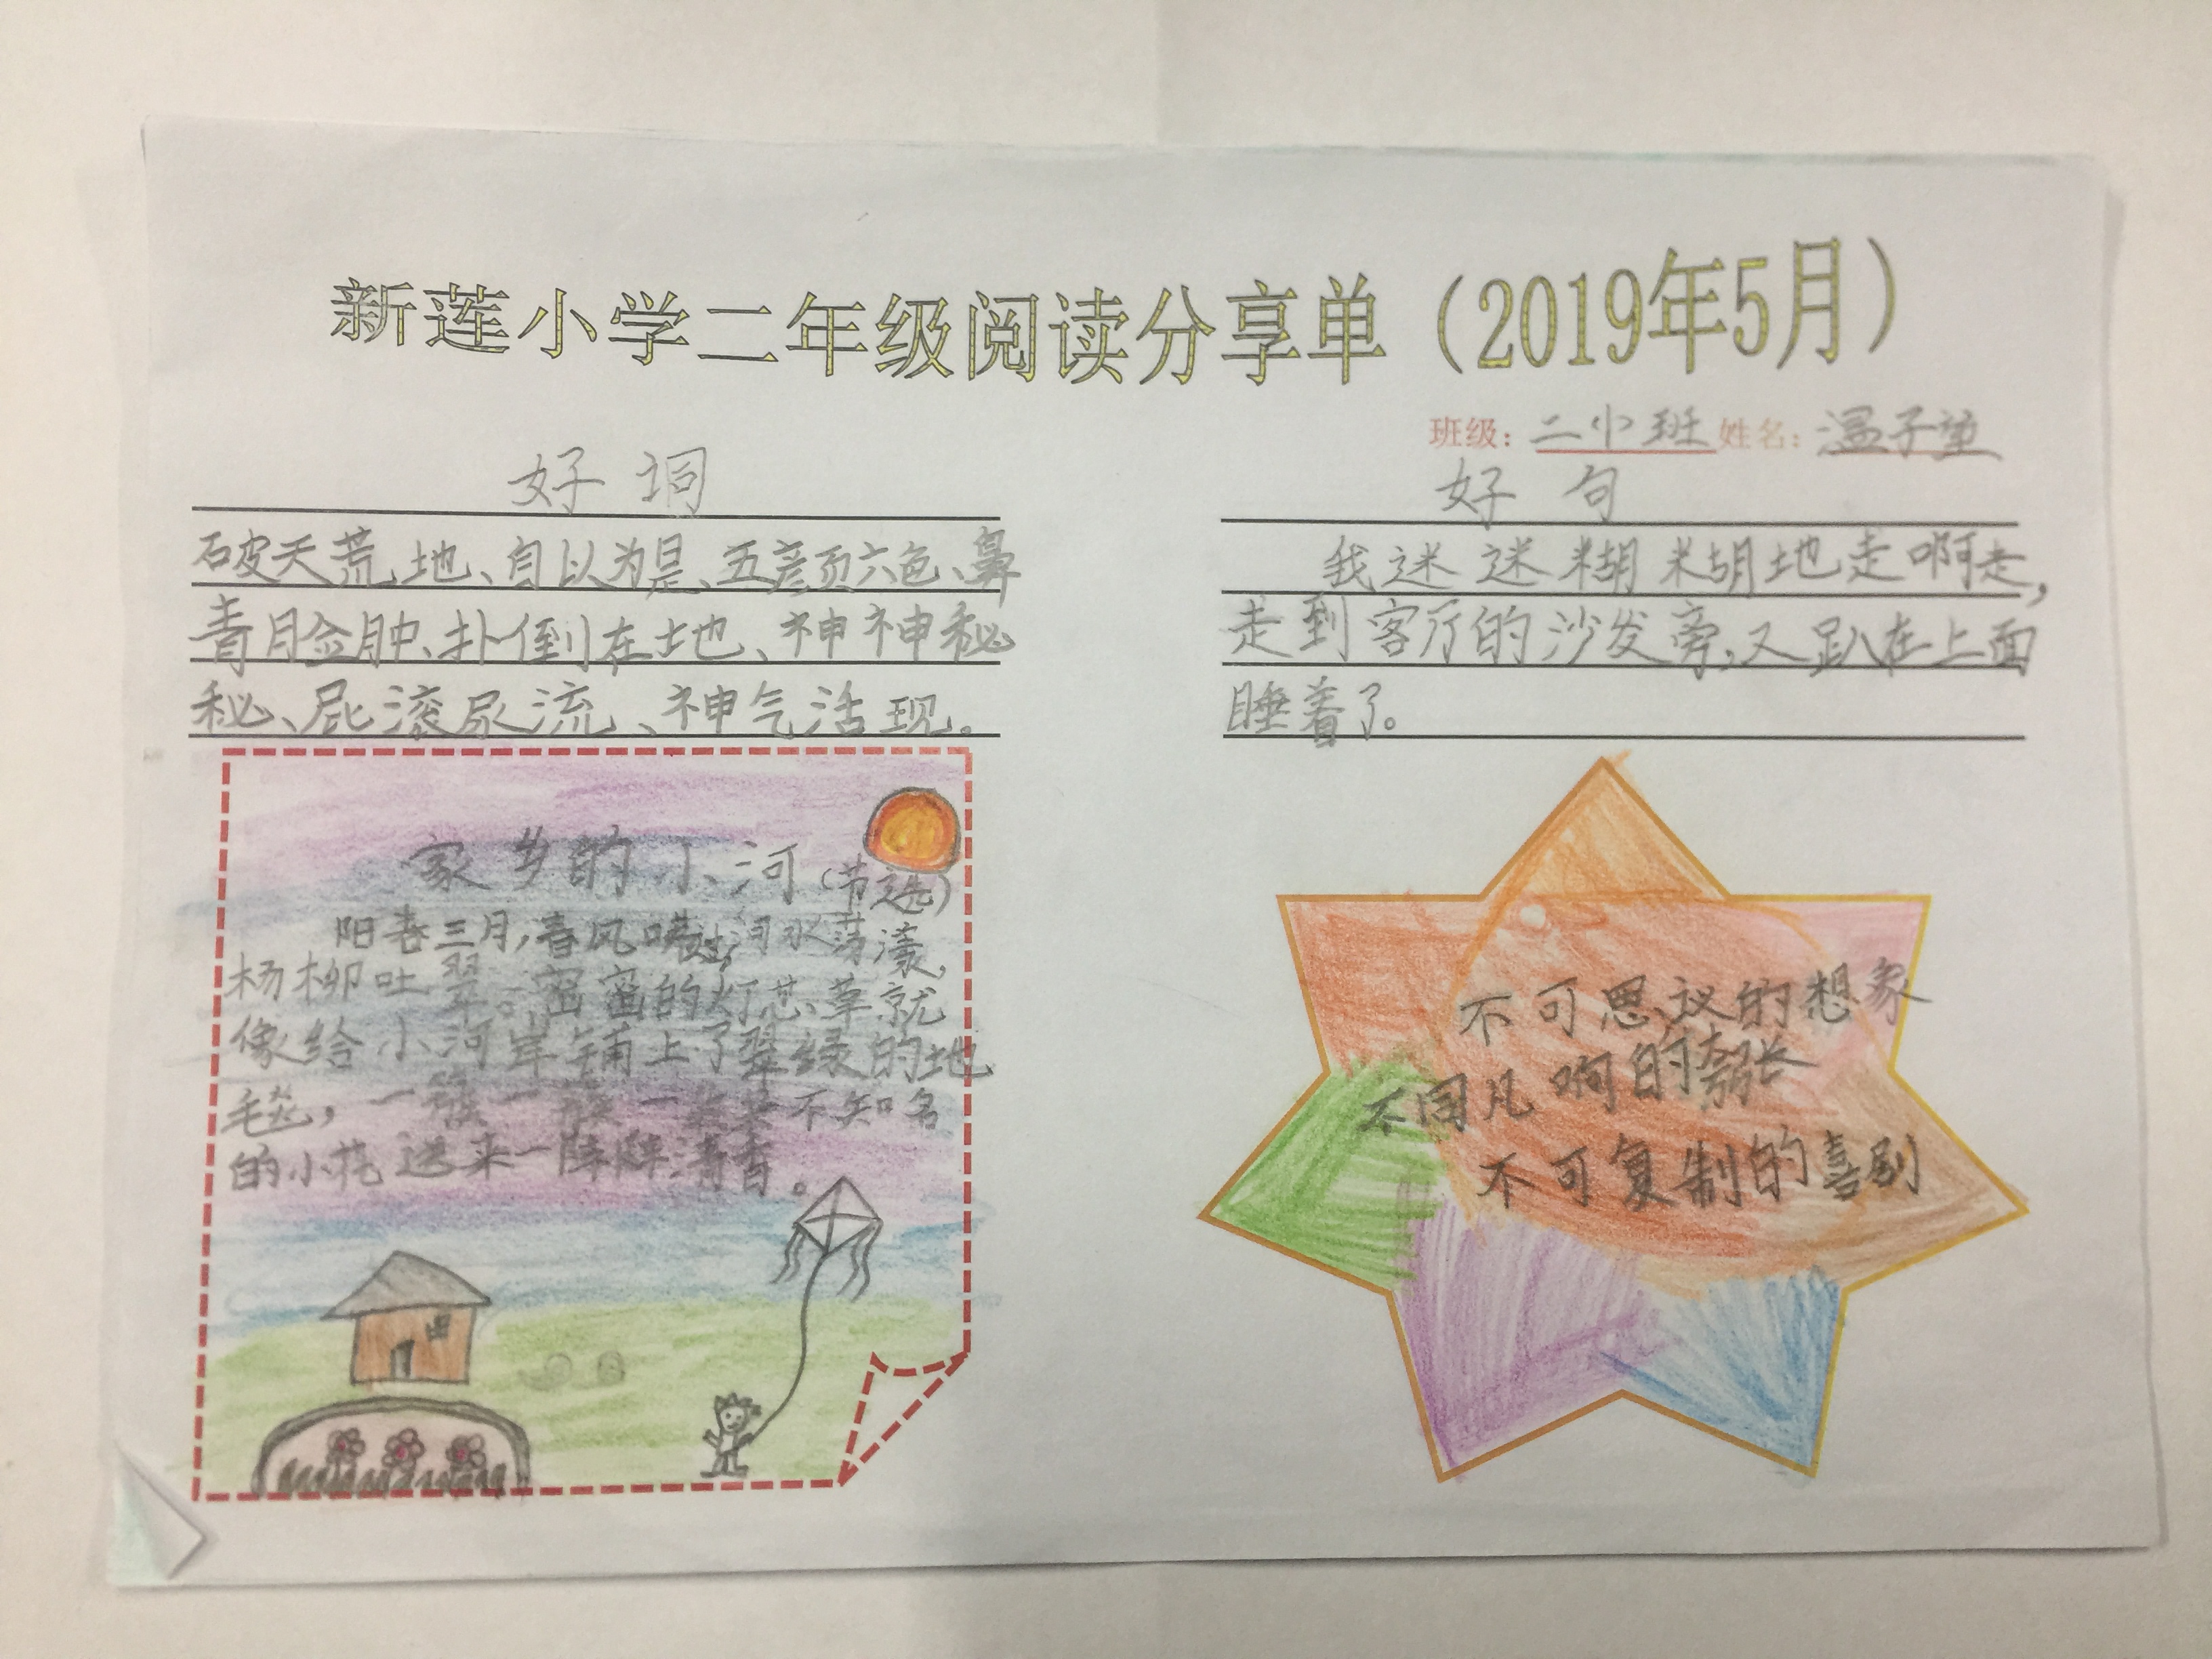 新莲小学二年级阅读分享单（2019年5月）
班级：二小班 姓名：温子
好词
破天荒地、自以为是、五颜六色、鼻
青脸肿、扑倒在地、神神秘
秘、屁滚尿流、神气活现。
好句
我迷迷糊糊地走啊走，
走到客厅的沙发旁，又趴在上面
睡着了。
家乡的小河（节选）
阳春三月，春风拂过，河水荡漾，
杨柳吐翠。密密的灯芯草就
像给小河岸铺上了翠绿的地
毛毯，一簇一簇一 不知名
的小花送来一阵阵清香。
不可思议的想象
不同凡啊的夸张
不可复制的喜剧